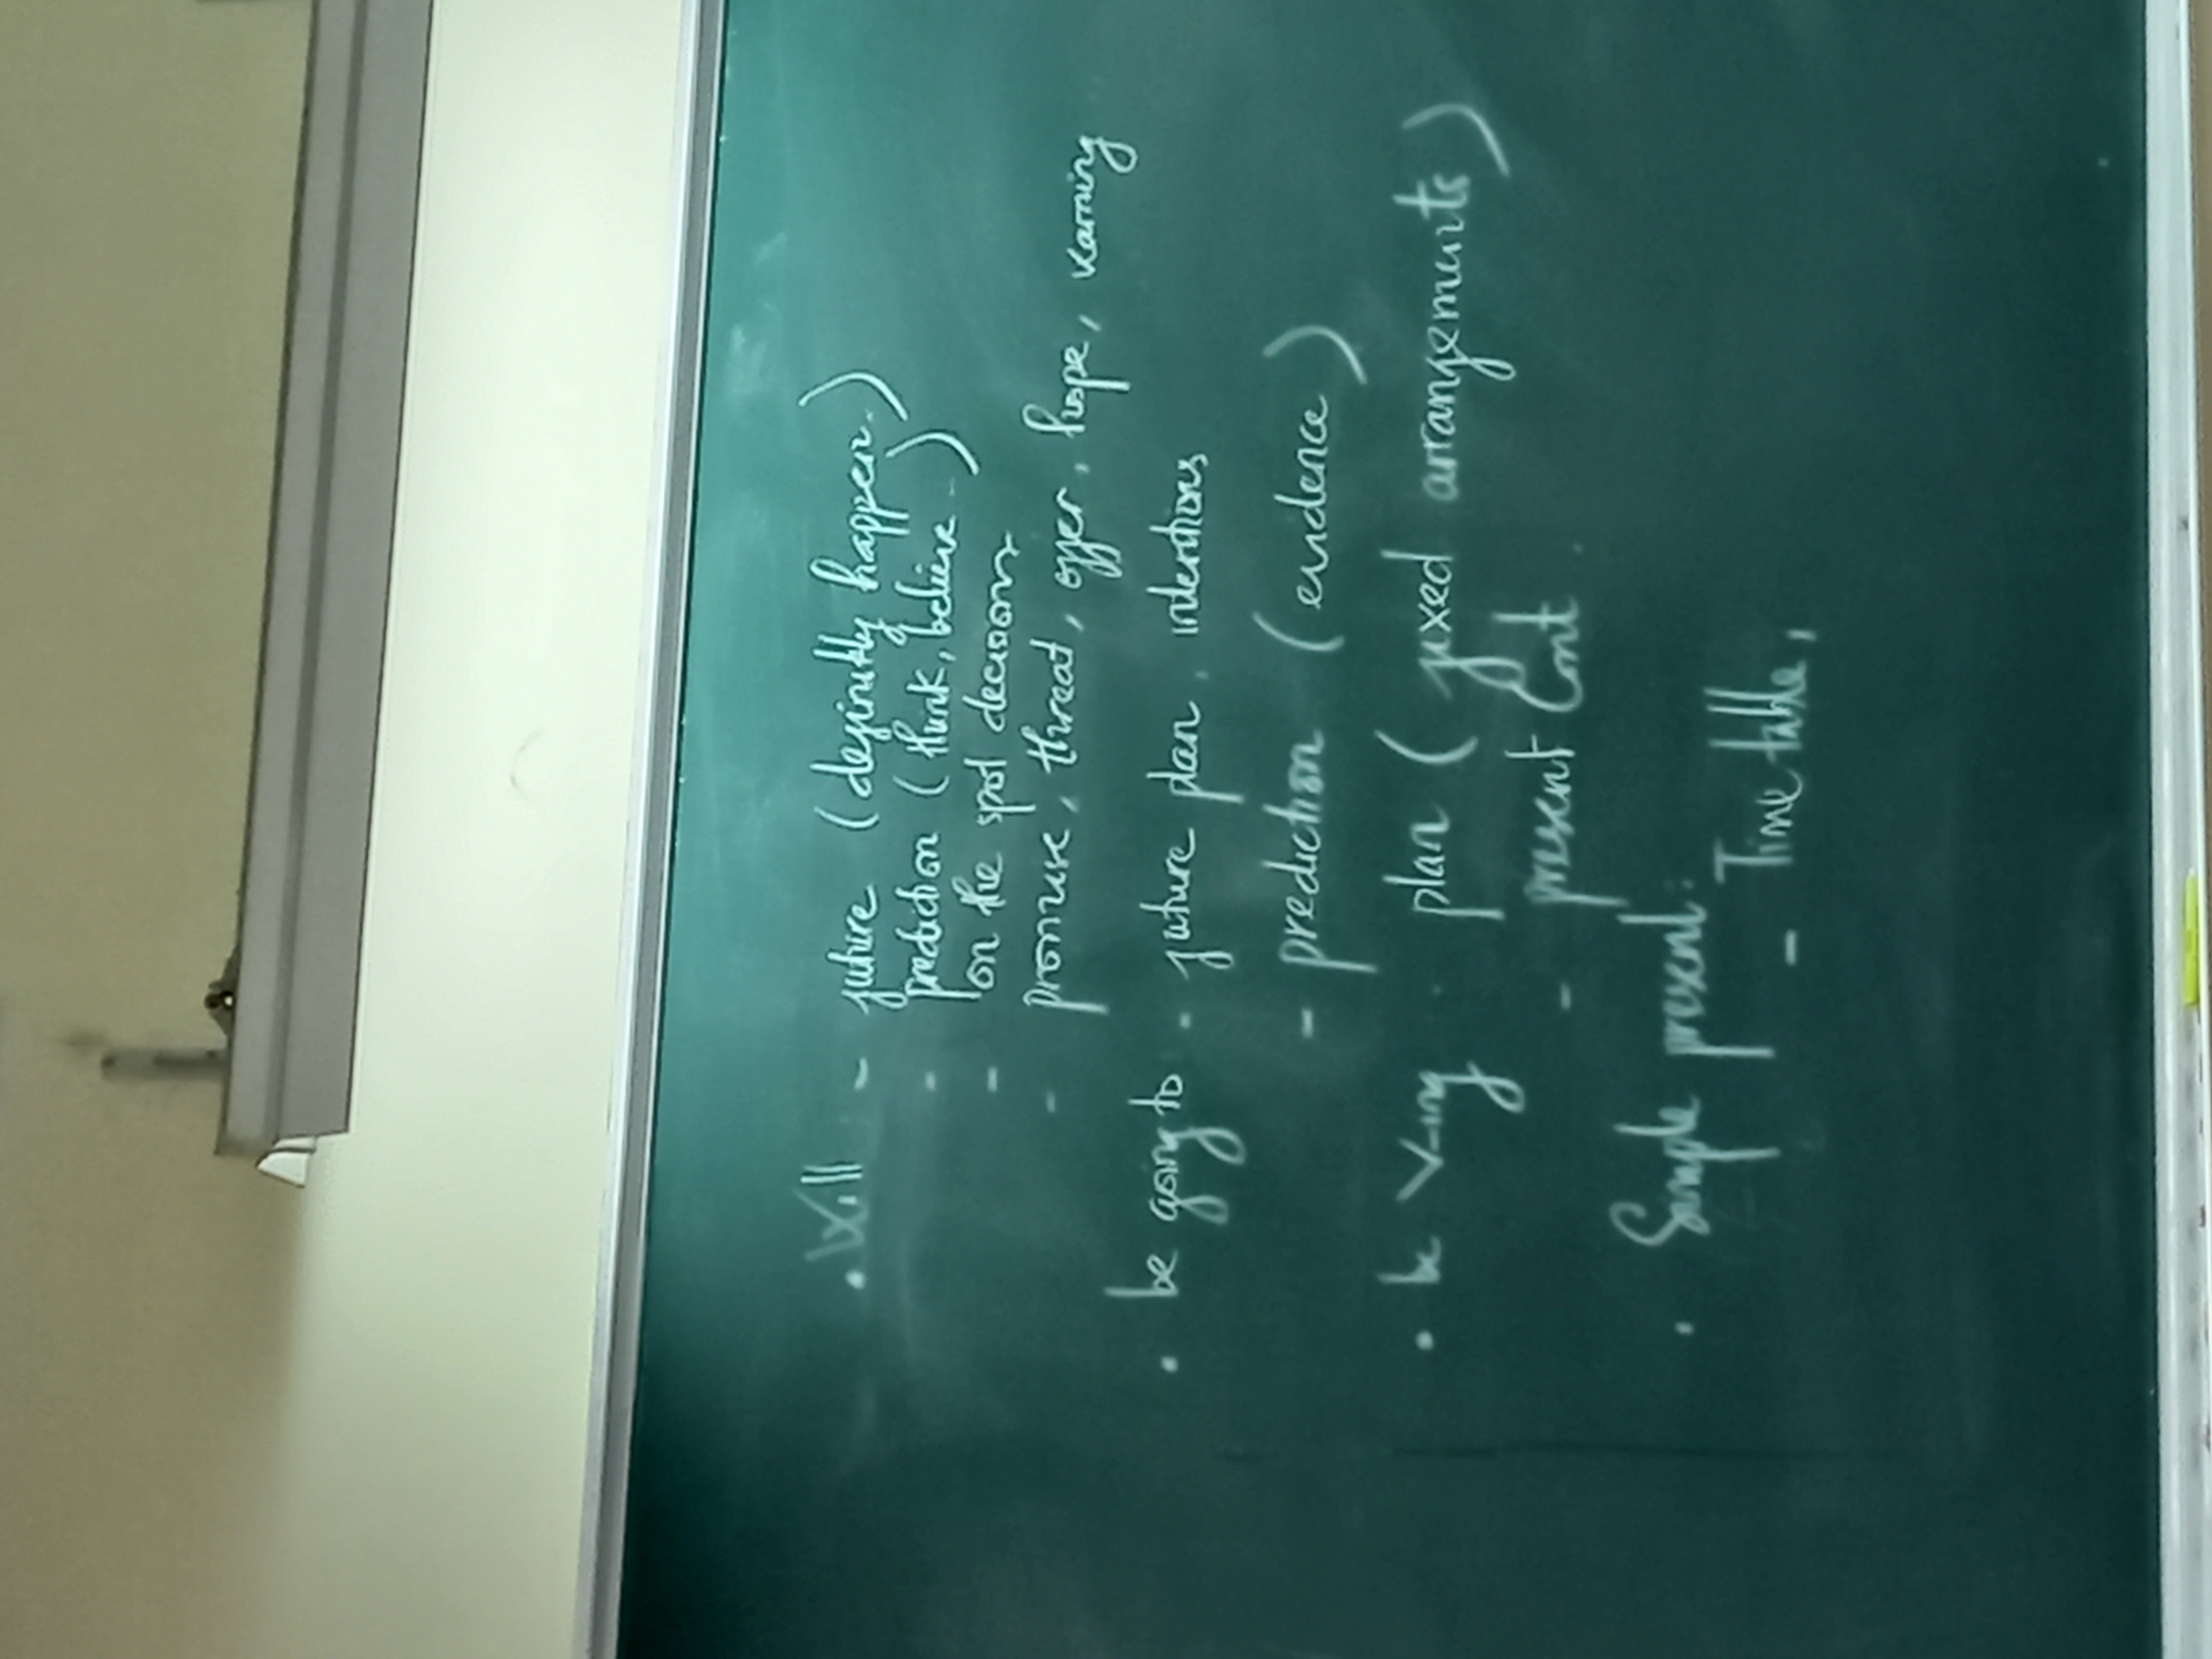 . Will - future (definitly happen..)
- prediction (think, believe ..)
- on the spot decisions
- promise, threat, offer, hope, warning
. be going to - future plan, intentions
- prediction (evidence)
. be V-ing - plan (fixed arrangements)
- present Cont.
. Simple present:
- Time table,